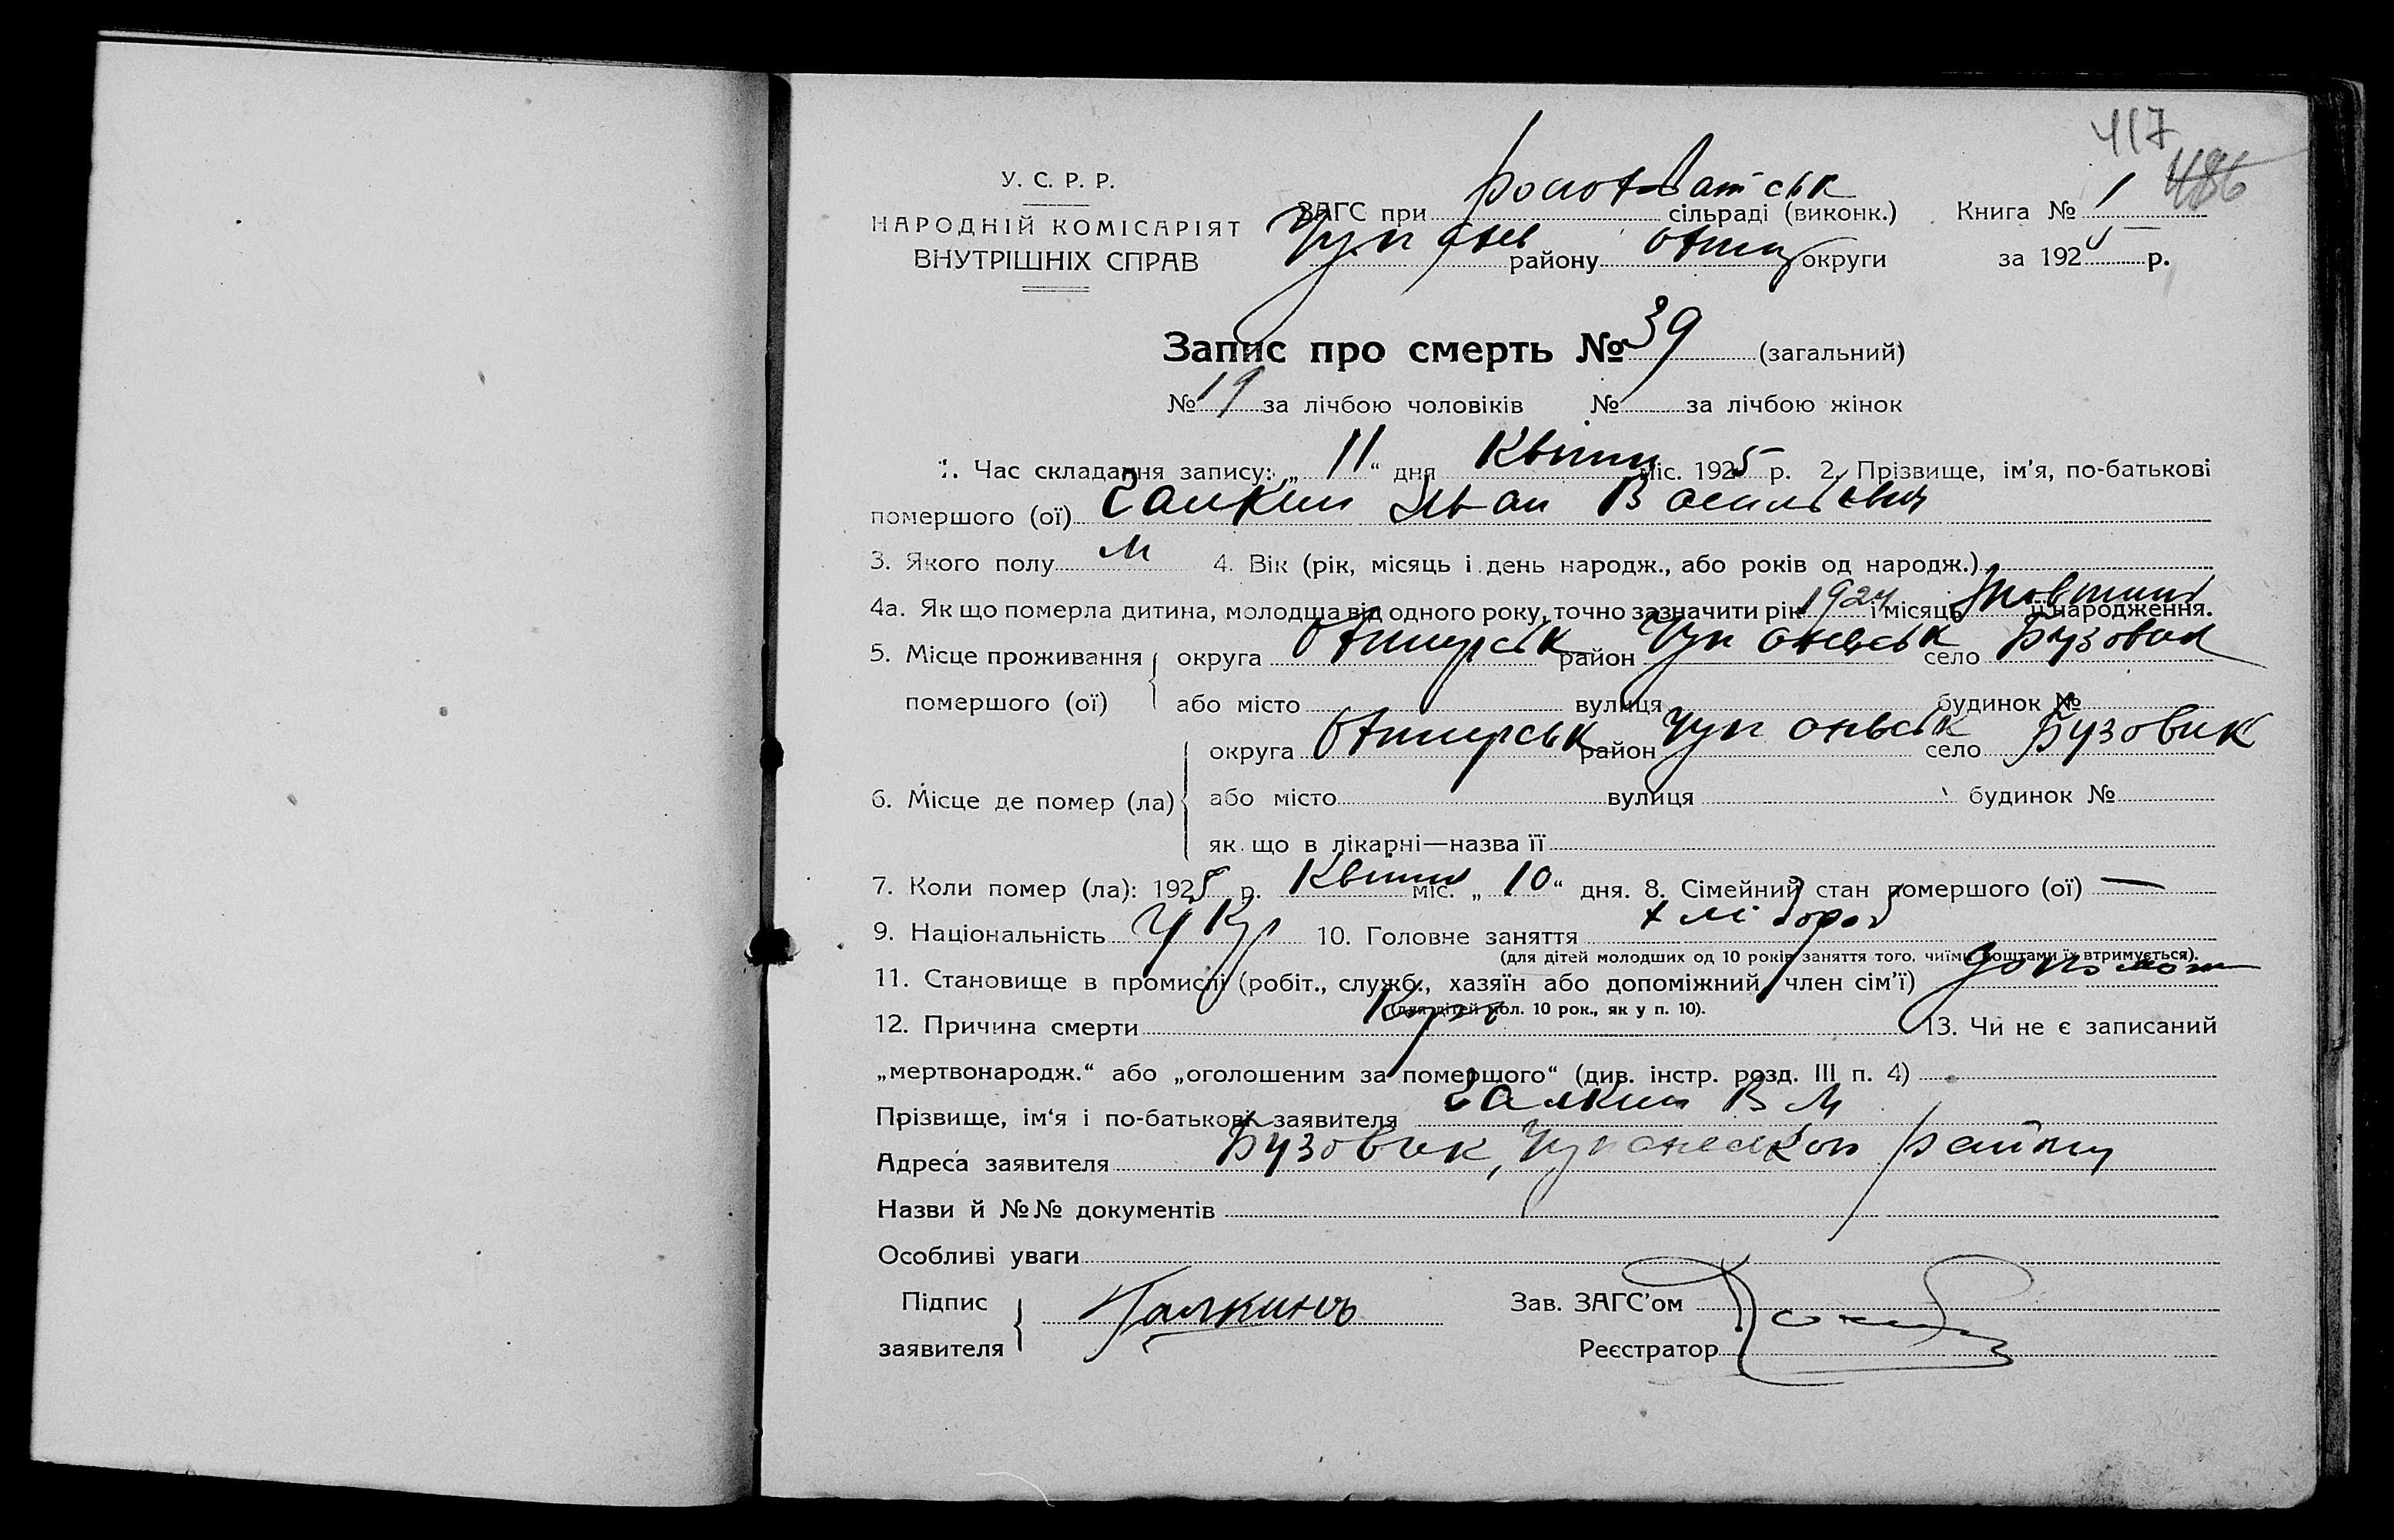 417
486
У. С. Р. Р.
НАРОДНІЙ КОМІСАРІЯТ
ВНУТРІШНІХ СПРАВ
ЗАГС при сільраді (виконк.)
району округи
Книга № 1
за 192 р.
Запис про смерть № 39 (загальний)
№ 19 за лічбою чоловіків № за лічбою жінок
1. Час складання запису: „ 11 “ дня Квітня міс. 1925 р. 2. Прізвище, ім’я, по-батькові
помершого (ої) Галкин Іван Васильевич
3. Якого полу М 4. Вік (рік, місяць і день народж., або років од народж.)
4а. Як що померла дитина, молодща від одного року, точно зазначити рік 1924 і місяць її народження.
5. Місце проживання помершого (ої) { округа район село Бузовик
або місто вулиця будинок №
6. Місце де помер (ла) { округа район село Бузовик
або місто вулиця будинок №
як що в лікарні—назва її
7. Коли помер (ла): 1925 р. Квітня міс. „ 10 “ дня. 8. Сімейний стан помершого (ої) —
9. Національність Укр 10. Головне заняття хлібороб
(для дітей молодших од 10 років заняття того, чиїми коштами їх втримується).
11. Становище в промислі (робіт., служб., хазяїн або допоміжний член сім’ї) допомож
(для дітей мол. 10 рок., як у п. 10).
12. Причина смерти 13. Чи не є записаний
„мертвонародж.“ або „оголошеним за помершого“ (див. інстр. розд. III п. 4)
Прізвище, ім‘я і по-батькові заявителя Галкин В М
Адреса заявителя Бузовик, району
Назви й №№ документів
Особливі уваги
Підпис заявителя { Галкинъ
Зав. ЗАГС’ом
Реєстратор